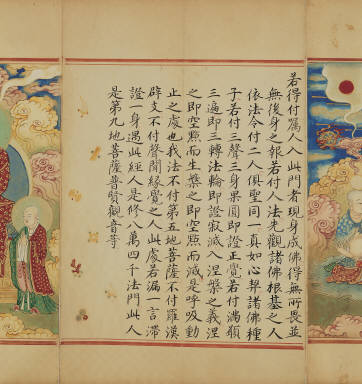 若得付属入此門者現身成佛得無所畏並
無後身之報若付人法先觀諸佛根基之人
依法令付二人俱聖同一真如心契諸佛種
子若付三聲三身果圓即證正覺若付滿願
三遍即三轉法輪即證寂滅入涅槃之義涅
之即空㸃而生槃之即空㸃而滅是呼吸動
止之處也我法不付第五地菩薩不付羅漢
辟支不付聲聞緣覺之人此處若漏一言滯
證一身遇此經一是修八萬四千法門此人
是第九地菩薩普賢觀音等